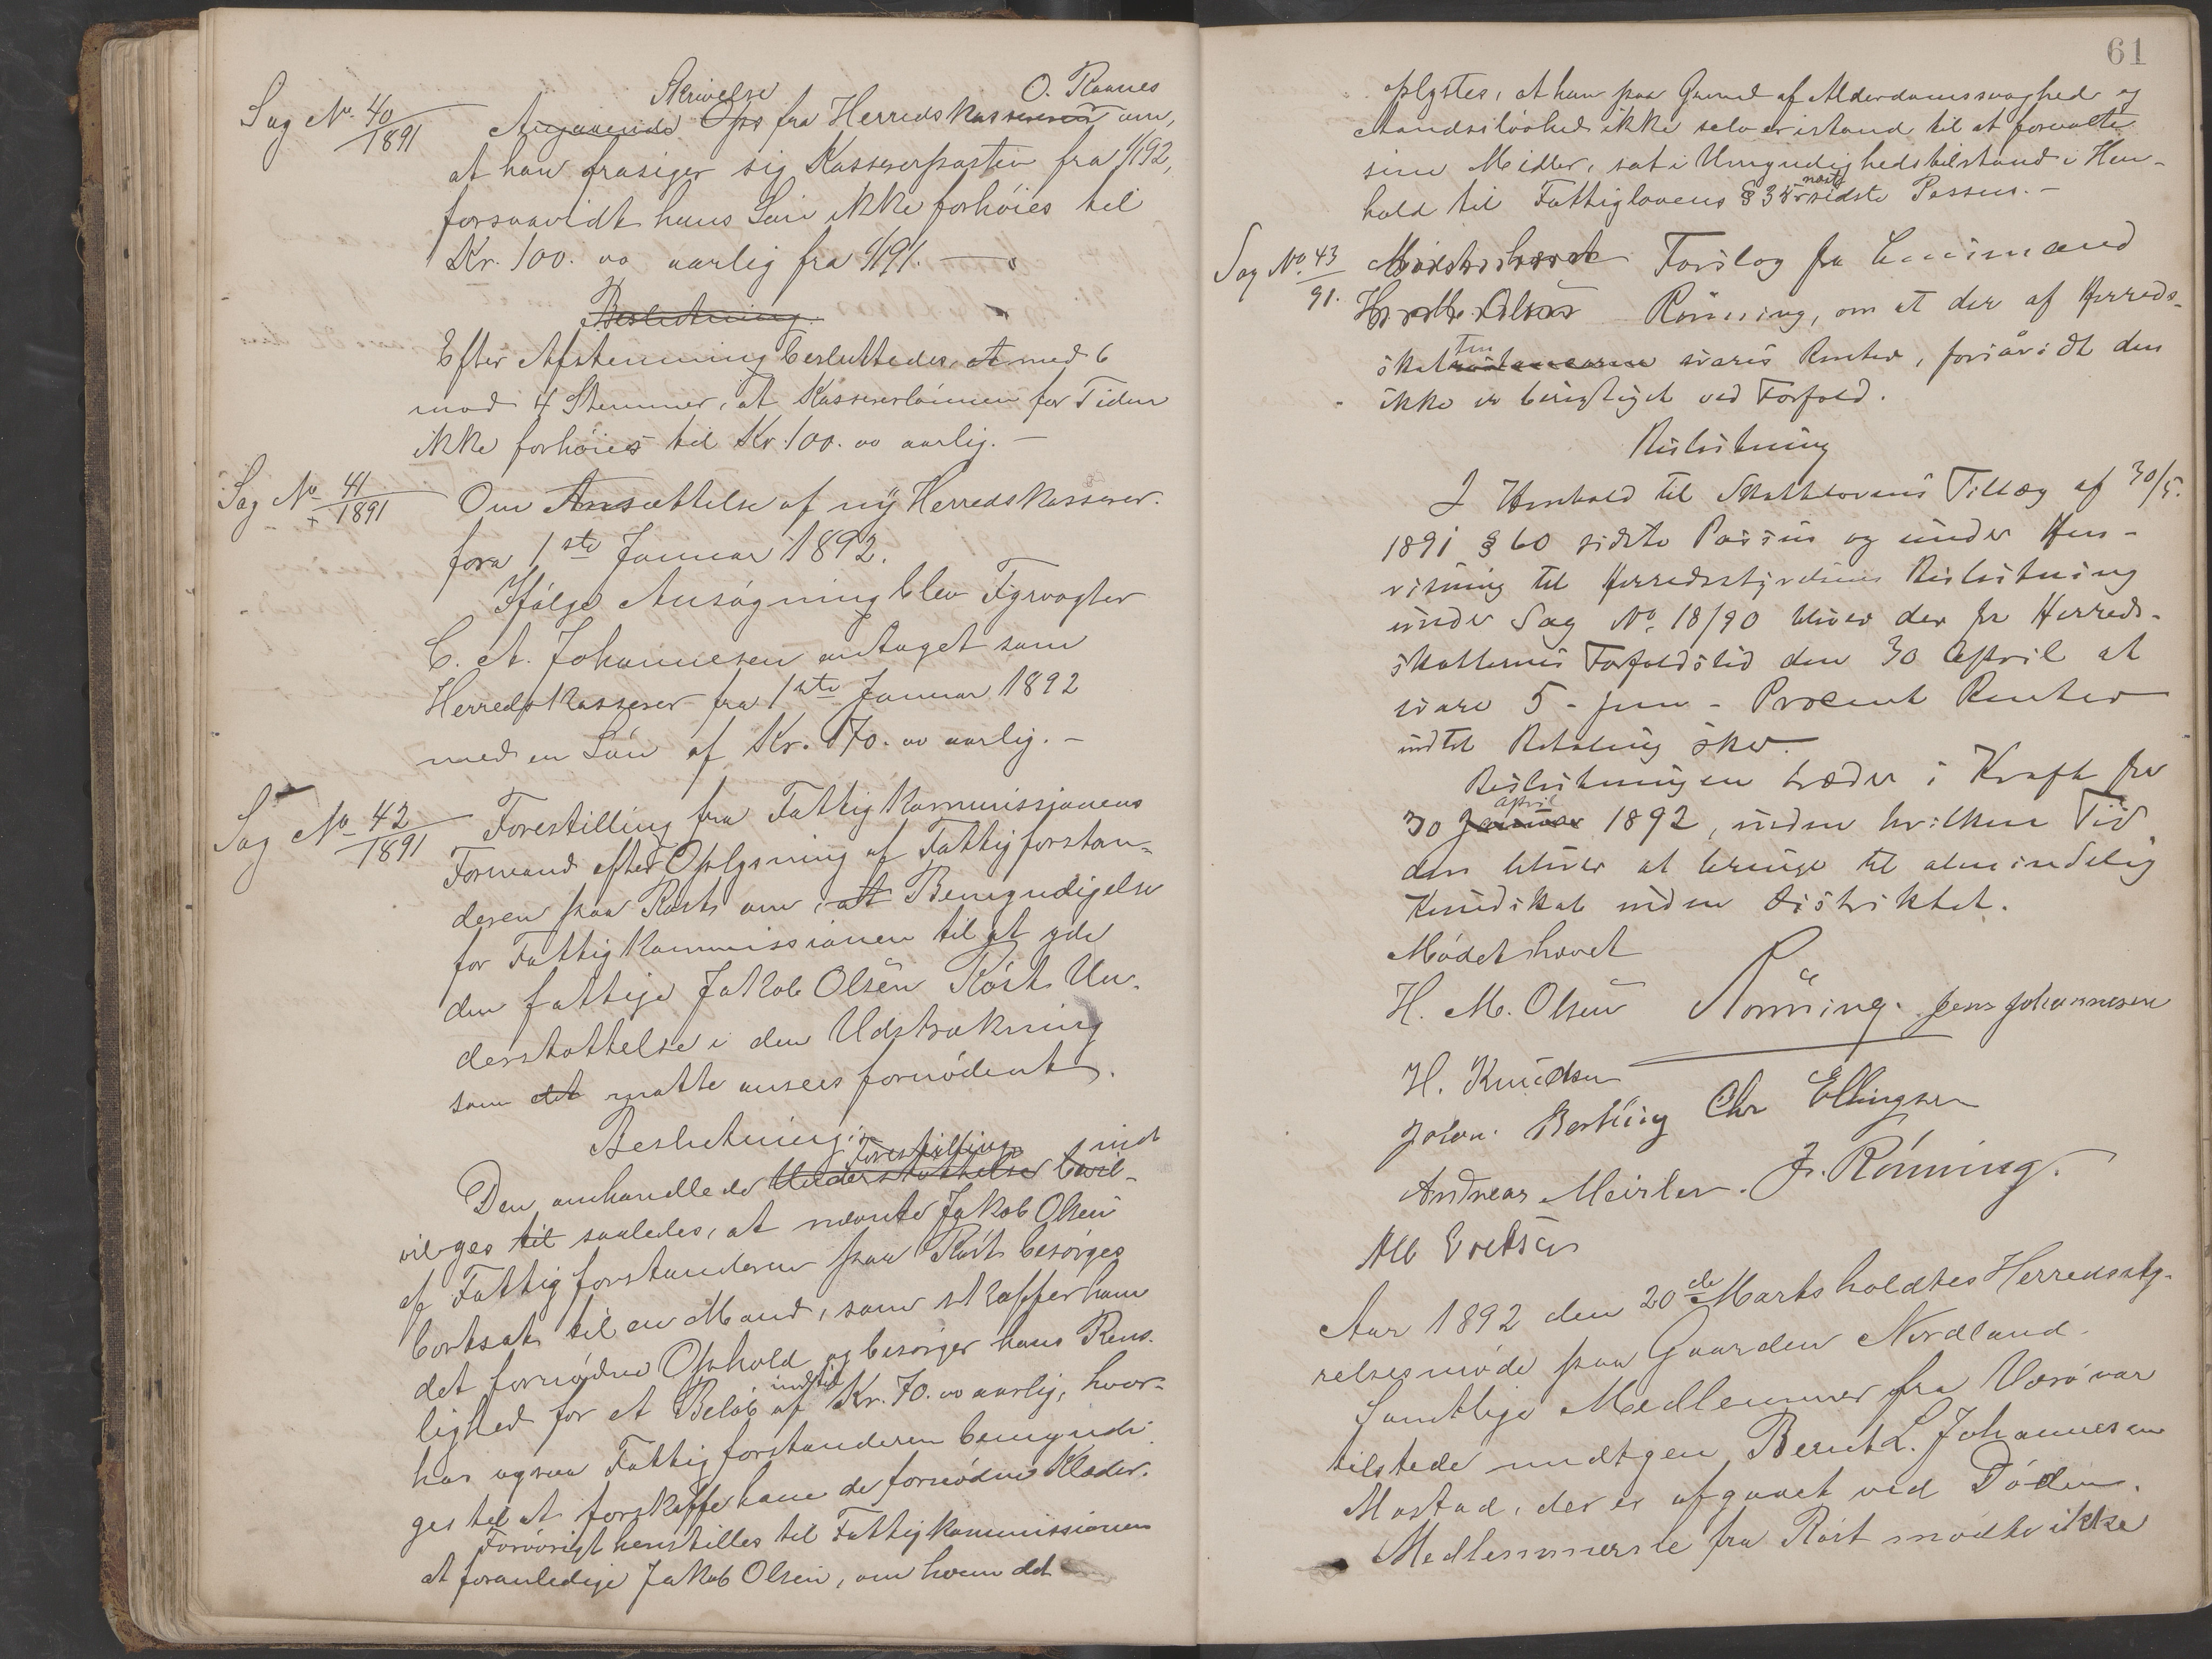 Sag No. 40/1891
Skrivelse O. Raanes
Angaaende Ops fra Herredskasseren om,
at han frasiger sig Kassererposten fra 1/1 92,
forsaavidt hans Løn ikke forhøies til
Kr. 100.00 aarlig fra 1/1 91. —
Beslutning.
Efter Afstemning besluttedes, at med 6
mod 4 Stemmer, at Kassererlønnen for Tiden
ikke forhøies til Kr. 100.00 aarlig. —
Sag No 41/1891
Om Ansættelse af ny Herredskasserer.
fra 1ste Januar 1892.
Ifølge Ansøgning blev Fyrvogter
C. A. Johannesen antaget som
Herredskasserer fra 1ste Januar 1892
med en Løn af Kr. 70.00 aarlig. —
Sag No 42/1891
Forestilling fra Fattigkommissionens
Formand efter Oplysning af Fattigforstan-
deren paa Røst om, at Bemyndigelse
for Fattigkommissionen til at yde
den fattige Jakob Olsen Røst Un-
derstøttelse i den Udstrækning
som det maatte ansees fornødent.
Beslutning:
Forestilling ind
Den omhandlede Understøttelse bevil-
vilges til saaledes, at nævnte Jakob Olsen
af Fattigforstanderen paa Røst besørges
bortsat til en Mand, som skaffer ham
det fornødne Ophold og besørger hans Rens-
lighed for et Beløb af indtil Kr. 70.00 aarlig, hvor-
hos ogsaa Fattigforstanderen bemyndi-
ges til at forskaffe ham de fornødne Klæder.
Forøvrigt henstilles til Fattigkommissionen
at foranledige Jakob Olsen, om hvem det
61
oplystes, at han paa Grund af Alderdomssvaghed og
Aandssløvhed ikke selv er istand til at forvalte
sine Midler, sat i Umyndighedstilstand i Hen-
hold til Fattiglovens § 38 næstsidste Passus. —
Sag No. 43/91.
Forslag fra Lensmand
Rønning, om at der af Herreds-
skatten svares Renter, forsåvidt den
ikke er berigtiget ved Forfald.
Beslutning
I Henhold til Skattelovens Tillæg af 30/5.
1891 § 60 sidste Passus og under Hen-
visning til Herredsstyrelsens Beslutning
under Sag No. 18/90 bliver der fra Herreds-
skatternes Forfaldstid den 30 April at
svare 5 - fem - Procent Renter
indtil Betaling sker.
Beslutningen træder i Kraft fra
30 Januar April 1892, inden hvilken Tid
den bliver at bringe til almindelig
Kundskab inden Distriktet.
Mødet hævet
H. M. Olsen Rønning. Jens Johannesen
H. Knudsen
Johan Berthing Chr Ellingsen
Andreas Meisler. J. Rønning.
Alb
Aar 1892 den 20de Marts holdtes Herredssty-
relsesmøde paa Gaarden Nordland.
Samtlige Medlemmer fra Værø var
tilstede undtagen Bernt L. Johannesen
Mostad, der er afgaaet ved Døden.
Medlemmerne fra Røst mødte ikke